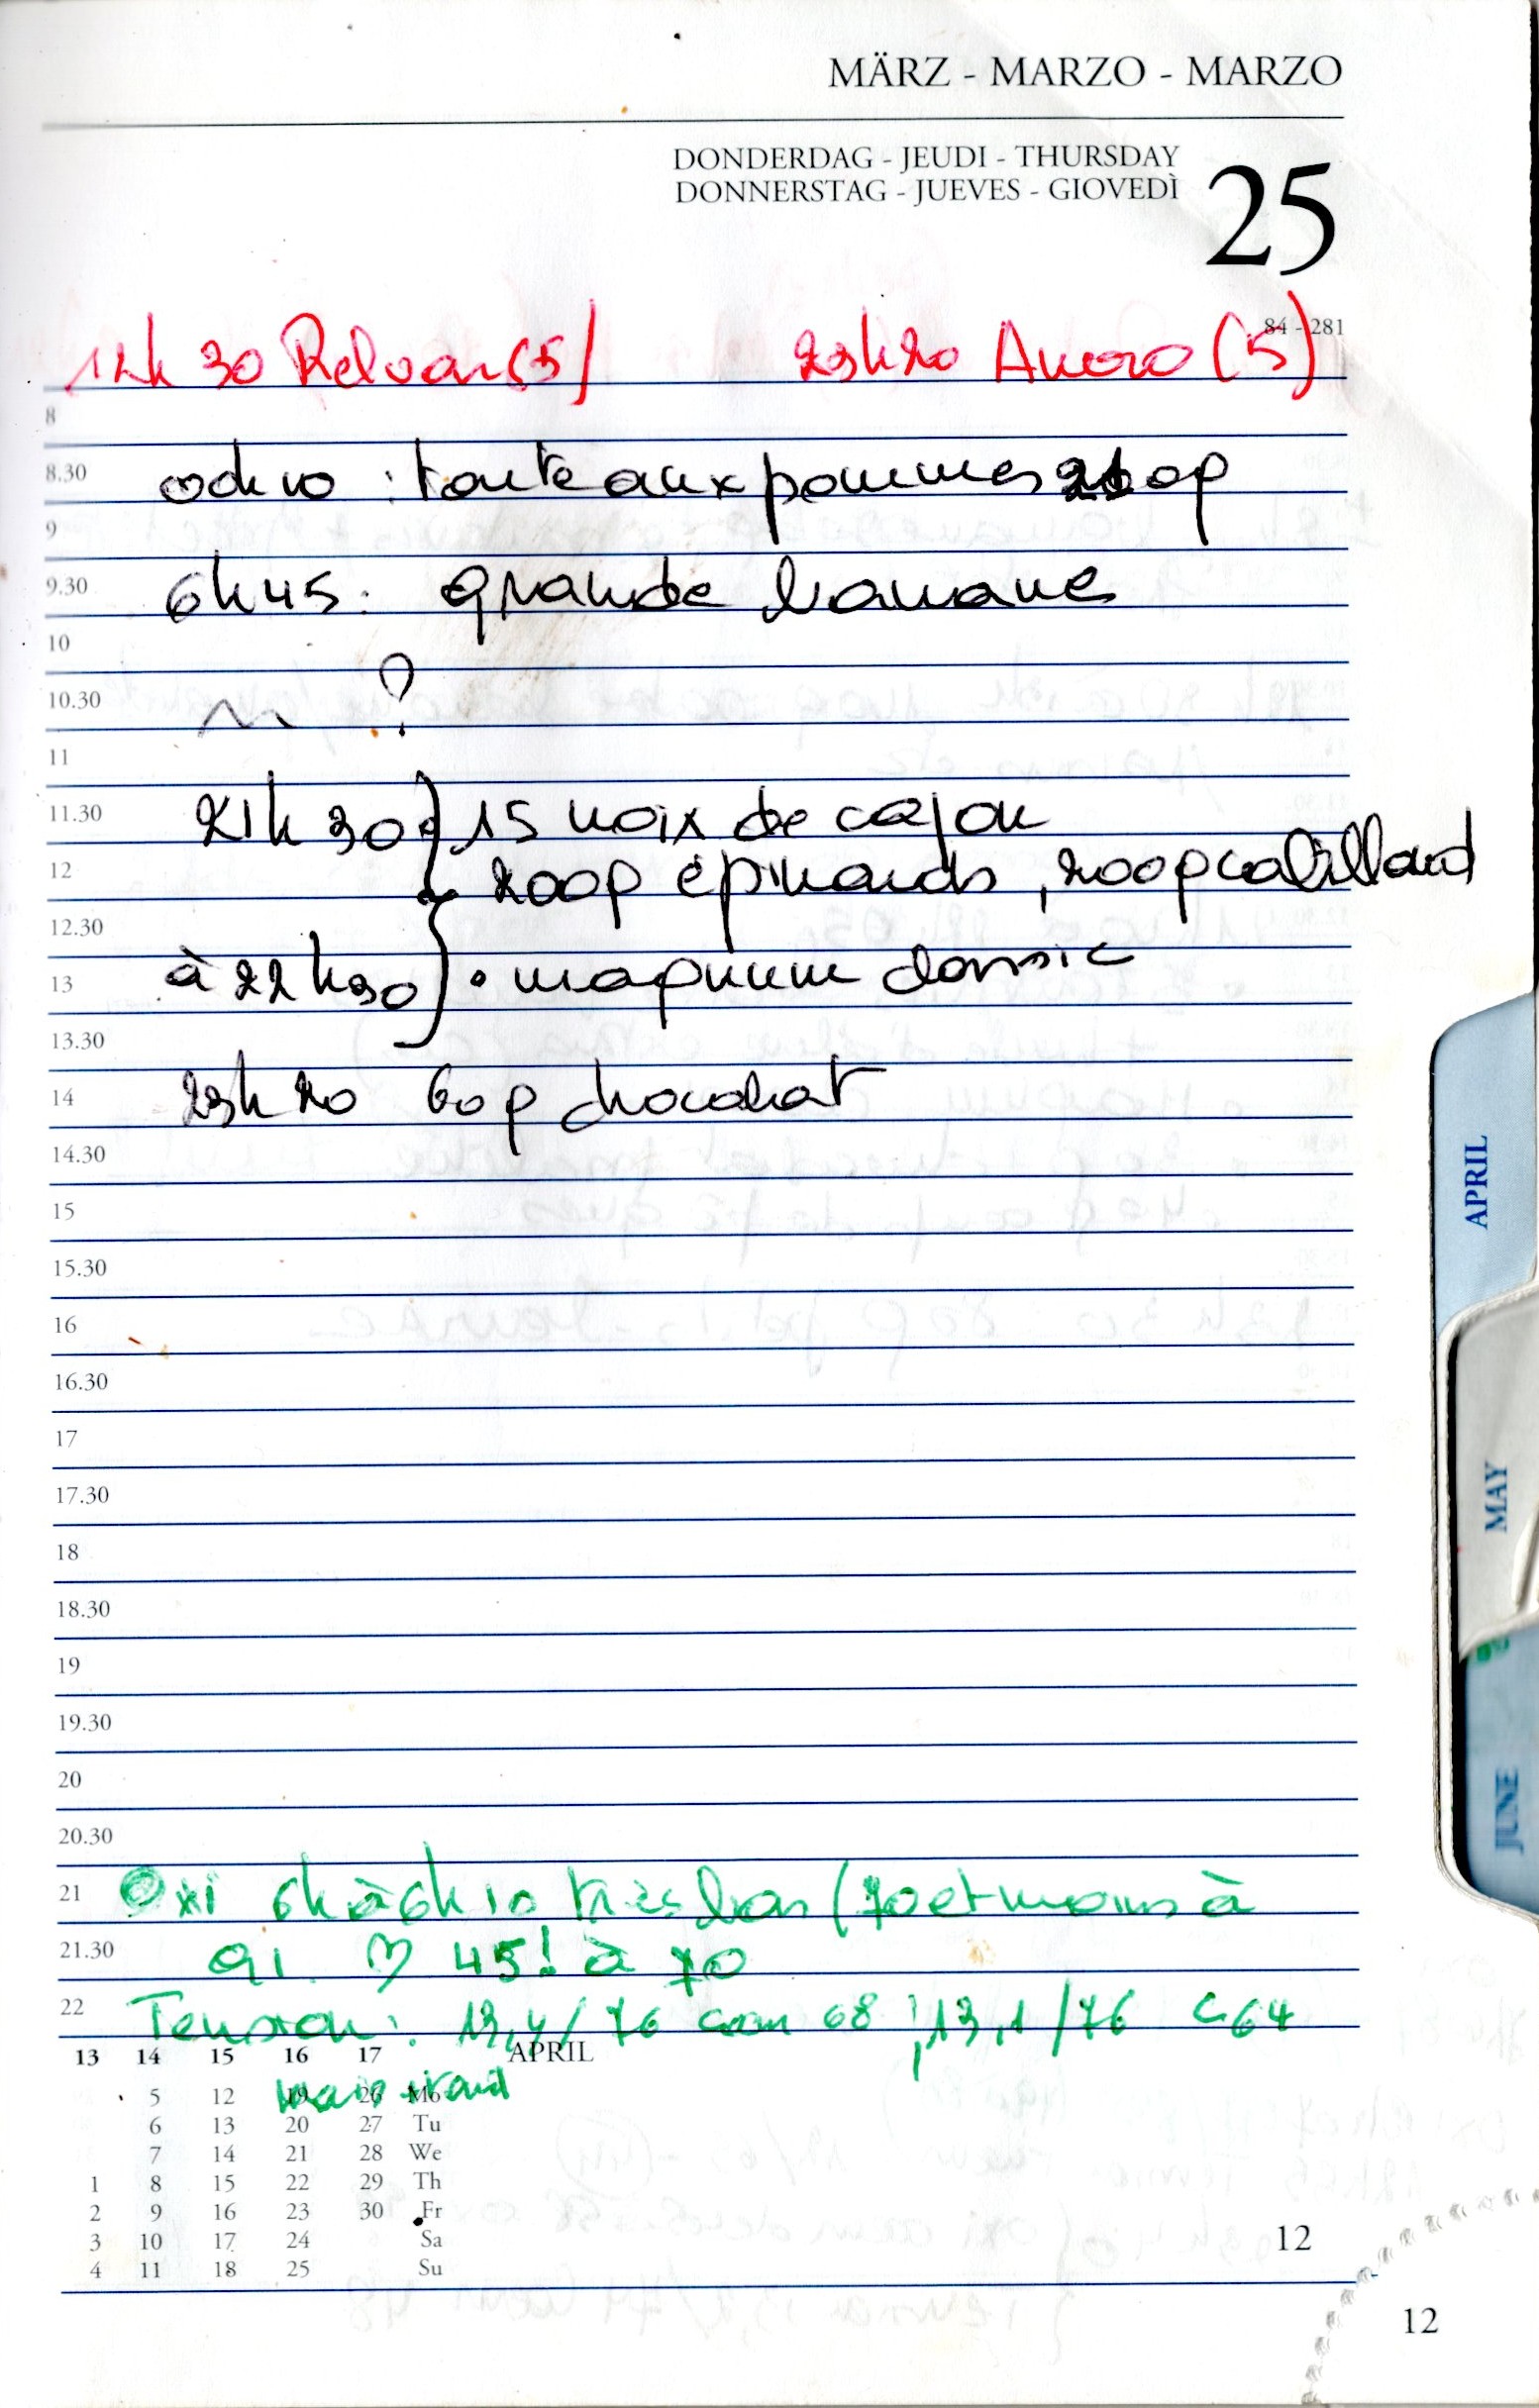 MÄRZ - MARZO - MARZO
DONDERDAG - JEUDI - THURSDAY
DONNERSTAG - JUEVES - GIOVEDÌ
25
84 - 281
12h 30 Relvar (5) 23h20 (5)
8
8.30 : tarte aux pommes
9
9.30 6h45 : grande banane
10
10.30 ?
11
11.30 21h30 } 15 noix de cajou
12 200g épinards, 200g cabillaud
12.30
13 à 22h30 } • magnum classic
13.30
14 23h20 60g chocolat
14.30
15
15.30
16
16.30
17
17.30
18
18.30
19
19.30
20
20.30
21 Oxi 6h à 6h10 très bas (70 et moins à
21.30 91. ♡ 45! à 70
22 Tension : 13,4/76 68 ; 13,1/76 C 64
13 14 15 16 17 APRIL
5 12 19 26 Mo
6 13 20 27 Tu
7 14 21 28 We
1 8 15 22 29 Th
2 9 16 23 30 Fr
3 10 17 24 Sa
4 11 18 25 Su
12
12
APRIL
MAY
JUNE